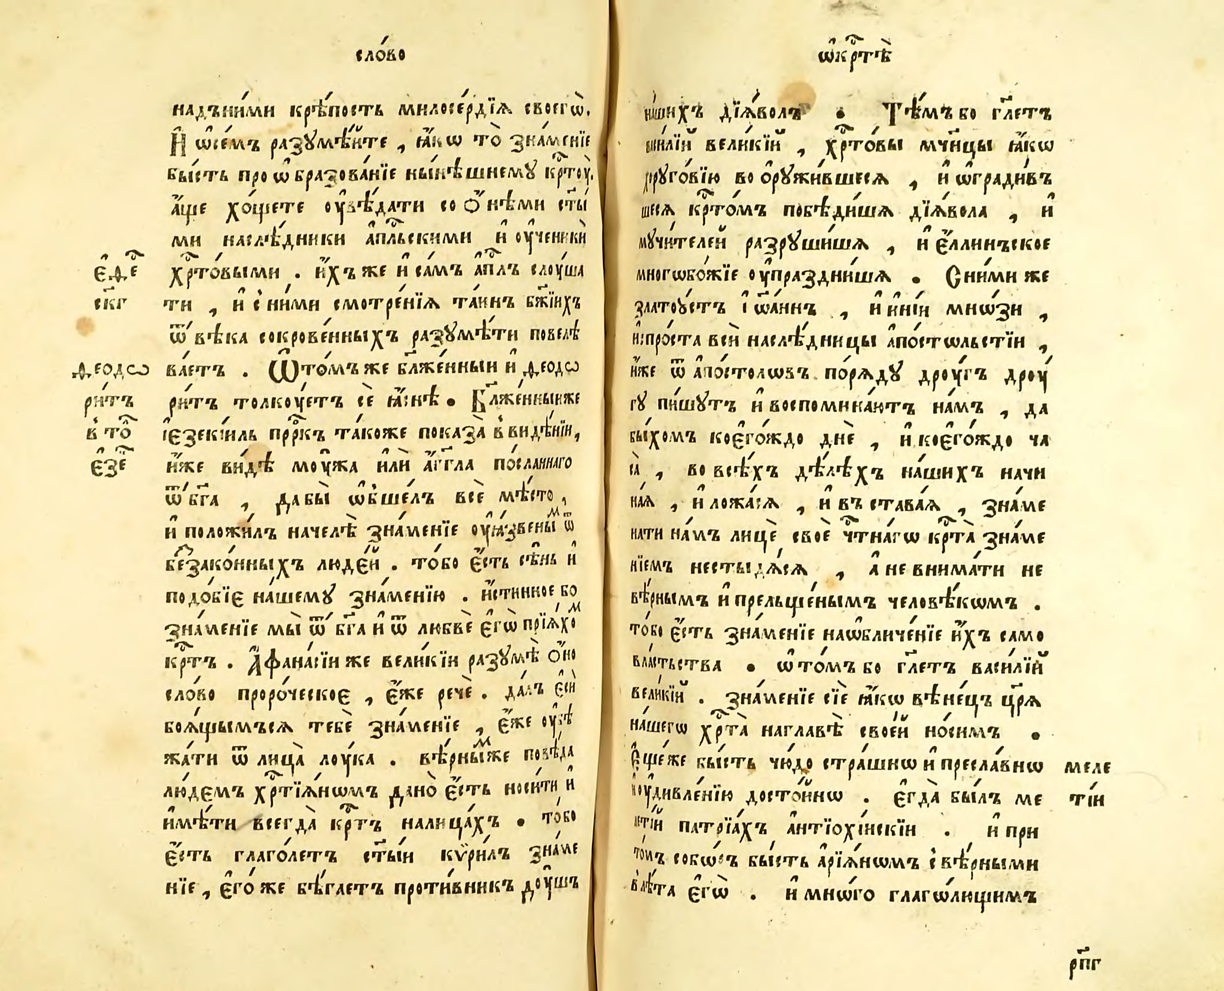 сло́во
над̾ни́ми крѣ́пость милосе́рдїѧ своегѡ̀.
И҆ ѡ҆се́мъ разꙋмѣ́йте , ꙗ҆́кѡ то̀ зна́менїе
бы́сть проѡбразова́нїе ны́нѣшнемꙋ крⷭ҇тоу̀.
а҆́ще хо́щете оу҆вѣ́дати со О҆нѣ́ми ст҃ы
ми наслѣ́дники а҆пⷭ҇льскими и҆ оу҆ченики
хрⷭ҇то́выми . и҆́хъ же и҆ са́мъ а҆пⷭ҇лъ слоуша
е҆фⷭ҇е
ти , и҆ с̾ни́ми смотре́нїѧ та́инъ бж҃їихъ
ск҃г
ѿ вѣ́ка сокрове́нныхъ разꙋмѣ́ти повелѣ
ва́етъ . Ѡ҆то́мъ же бл҃же́нныи и҆ ѳ҆еодѡ
ѳеодѡ
ри́тъ толкоу́етъ сѐ ꙗ҆́снѣ • Бл҃же́нныи же
ри́тъ
і҆езекі́иль прⷪ҇ркъ та́коже показа̀ в̾ видѣ́нїи,
в̾ то
и҆́же ви́дѣ моу́жа и҆лѝ а҆́гг҃ла по́сланнаго
е҆зе
ѿ бг҃а , дабы̀ ѡ҆бше́лъ всѐ мѣ́сто ,
и҆ положи́лъ начелѣ̀ зна́менїе оу҆ꙗ҆́звены ѿ
беззако́нныхъ люде́й . то́бо е҆́сть сѣ́нь и҆
подо́бїе на́шемꙋ зна́менїю . и҆́стинное бо
зна́менїе мы̀ ѿ бг҃а и҆ ѿ любвѐ є҆гѡ̀ прїѧ́хо
крⷭ҇тъ . А҆фана́сїи же вели́кїи разꙋмѣ̀ о҆́но
сло́во проро́ческое , є҆́же речѐ . да́лъ є҆сѝ
боѧ́щымъсѧ тебѐ зна́менїе , є҆́же оу҆бѣ
жа́ти ѿ лица̀ лоу́ка . вѣ́рны́мже повѣ́да
лю́демъ хрⷭ҇тїѧ́нѡмъ дано̀ е҆́сть носи́ти и҆
и҆мѣ́ти всегда̀ крⷭ҇тъ на лица́хъ • то́бо
є҆́сть глаго́летъ ст҃ы́и кѷри́лъ зна́ме
нїе , є҆го́ же бѣ́гаетъ проти́вникъ доу́шъ
ѡ҆крⷭ҇тѣ̀
на́шихъ дїѧ́волъ • Тѣ́мъ бо гл҃етъ
васи́лїй вели́кїй , хрⷭ҇то́вы мч҃ницы ꙗ҆́кѡ
хоруго́вїю воѻружи́вшесѧ , и҆ ѡ҆гради́въ
шесѧ крⷭ҇то́мъ побѣди́шѧ дїѧ́вола , и҆
мꙋчи́телей разрꙋши́шѧ , и҆ є҆́ллинъское
многѡбо́жїе оу҆праздни́шѧ • Сни́ми же
златоу́стъ і҆ѡа́ннъ , и҆ и҆ні́и мнѡ́зи ,
и҆ про́ста всѝ наслѣ́дницы а҆посто́льстїи ,
и҆́же ѿ а҆по́столѡвъ порѧ́дꙋ дроу́гъ дроу́
гꙋ пи́шꙋтъ и҆ воспомина́ютъ на́мъ , да
бы́хомъ коегѡ́ждо днѐ , и҆ коегѡ́ждо ча
са̀ , во всѣ́хъ дѣ́лѣхъ на́шихъ начи
на́ѧ , и҆ ложа́сѧ , и҆ въстава́ѧ , зна́ме
нати на́мъ лицѐ своѐ чтⷭ҇на́гѡ крⷭ҇та̀ зна́ме
нїемъ нестыдѧ́сѧ , а҆ не внима́ти не
вѣ́рнымъ и҆ прельще́нымъ человѣ́кѡмъ .
то́бо є҆́сть зна́менїе на ѡ҆бличе́нїе и҆́хъ само
вла́стьства • ѡ҆то́мъ бо гл҃етъ васи́лїй
вели́кїй . зна́менїе сїѐ ꙗ҆́кѡ вѣне́цъ цр҃ѧ̀
на́шегѡ хрⷭ҇та̀ на главѣ̀ свое́й но́симъ •
Є҆ще́ же бы́сть чю́до стра́шнѡ и҆ пресла́внѡ
меле
и҆ оу҆дивле́нїю досто́йнѡ . є҆гда̀ бы́лъ ме
тїи
ле́тїй патрїа́хъ а҆нтїохі́искїи . и҆ при
то́мъ собѡ́ръ бы́сть а҆рїѧ́нѡмъ с̾ вѣ́рными
в̾ лѣ́та є҆гѡ̀ . и҆ мнѡ́го глаго́лющимъ
рп҃г